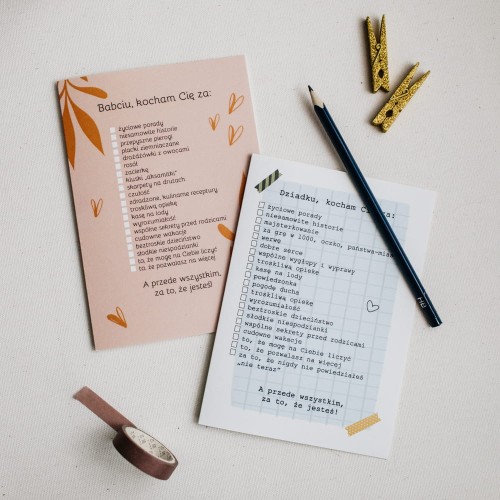 Babciu, kocham Cię za:
życiowe porady
niesamowite historie
przepyszne pierogi
placki ziemniaczane
drożdżówki z owocami
rosół
zacierkę
kluski „aksamitki"
skarpety na drutach
czułość
zdradzone, kulinarne receptury
troskliwą opiekę
kasę na lody
wyrozumiałość
wspólne sekrety przed rodzicami
cudowne wakacje
beztroskie dzieciństwo
słodkie niespodzianki
to, że mogę na Ciebie liczyć
to, że pozwalasz na więcej
A przede wszystkim,
za to, że jesteś!
Dziadku, kocham za:
życiowe porady
niesamowite historie
majsterkowanie
za grę w 1000, oczko, państwa-mia
werwę
dobre serce
wspólne wygłupy i wyprawy
troskliwą opiekę
kasę na lody
powiedzonka
pogodę ducha
troskliwą opiekę
wyrozumiałość
beztroskie dzieciństwo
słodkie niespodzianki
wspólne sekrety przed rodzicami
cudowne wakacje
to, że mogę na Ciebie liczyć
to, że pozwalasz na więcej
za to, że nigdy nie powiedziałeś
„nie teraz"
A przede wszystkim,
za to, że jesteś!
HB